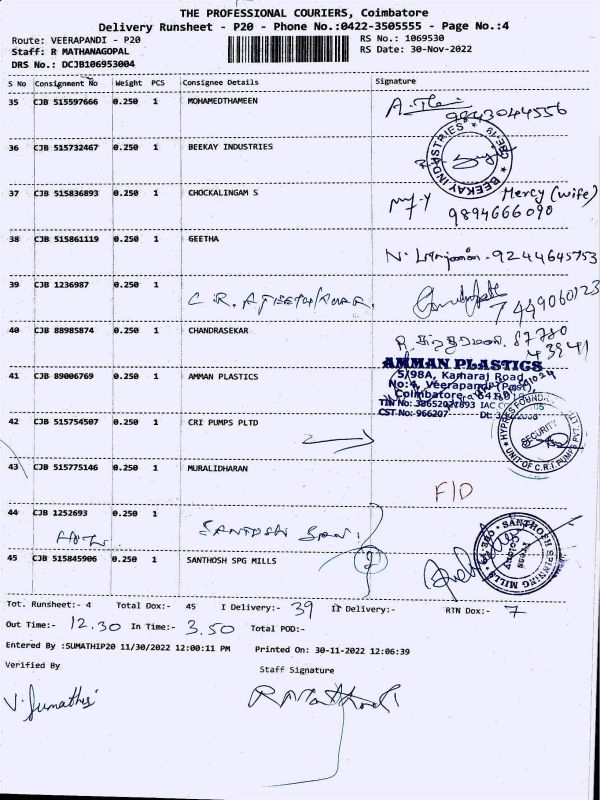 THE PROFESSIONAL COURIERS, Coimbatore
Delivery Runsheet - P20 - Phone No.:0422-3505555 - Page No.:4
Route: VEERAPANDI - P20
RS No.: 1069530
Staff: R MATHANAGOPAL
RS Date: 30-Nov-2022
DRS No.: DCJB106953004
S No Consignment No Weight PCS Consignee Details Signature
35 CJB 515597666 0.250 1 MOHAMEDTHAMEEN
9843044556
36 CJB 515732467 0.250 1 BEEKAY INDUSTRIES
BEEKAY INDUSTRIES
37 CJB 515836893 0.250 1 CHOCKALINGAM S
Mercy (wife)
9894666090
38 CJB 515861119 0.250 1 GEETHA
9244645753
39 CJB 1236987 0.250 1
7449060123
40 CJB 88985874 0.250 1 CHANDRASEKAR
87780
43941
41 CJB 89006769 0.250 1 AMMAN PLASTICS
AMMAN PLASTICS
5/98A, Kamaraj Road,
No:4, Veerapandi (Post),
Coimbatore
TIN No: 38652021893
CST No: 966207
42 CJB 515754507 0.250 1 CRI PUMPS PLTD
SECURITY
UNIT OF C.R.I. PUMPS
43 CJB 515775146 0.250 1 MURALIDHARAN
F/D
44 CJB 1252693 0.250 1
45 CJB 515845906 0.250 1 SANTHOSH SPG MILLS
SANTHOSH SPINNING MILLS
Tot. Runsheet:- 4 Total Dox:- 45 I Delivery:- 39 II Delivery:- RTN Dox:- 7
Out Time:- 12.30 In Time:- 3.50 Total POD:-
Entered By :SUMATHIP20 11/30/2022 12:00:11 PM Printed On: 30-11-2022 12:06:39
Verified By
Staff Signature
V. Sumathi